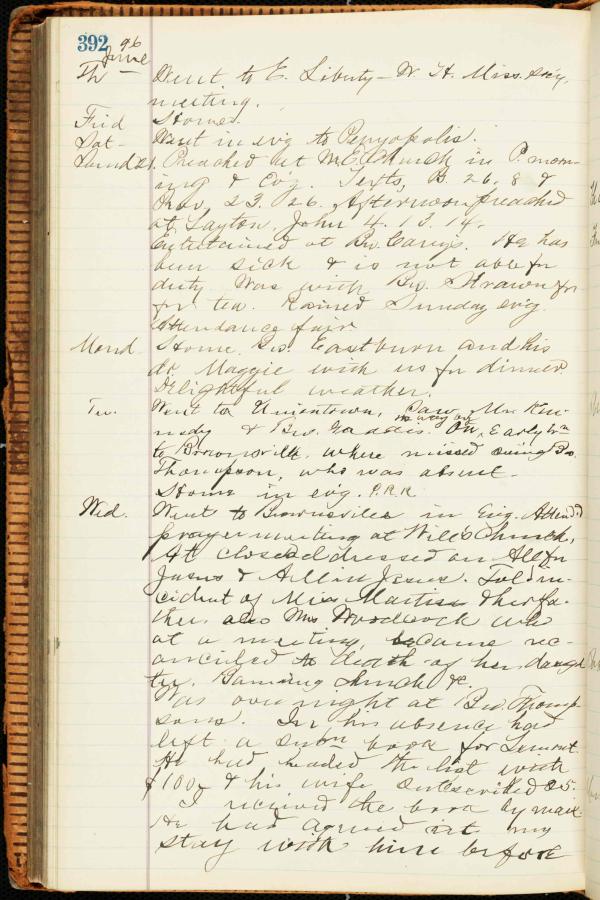 392 June 96
Th Went to E. Liberty - W. H. Miss. Soc'y.
meeting.
Frid Home.
Sat- Went in ev'g to Perryopolis.
Sund 21. Preached at M.E. Church in P. morn-
ing & Ev'g. Texts, 26. 8 &
Prov. 23. 26. Afternoon preached
at Layton. John 4. 13. 14.
Entertained at Bro. He has
been sick & is not able for
duty. Was with Bro. Strawn for
for tea. Rained Sunday ev'g.
Attendance fair.
Mond. Home. Bro. Eastburn and his
dr Maggie with us for dinner.
Delightful weather.
Tu. Went to Uniontown, Saw Mr. Ken-
nedy & Bro. Gaddis. On my way on Early trn
to Brownsville, where missed seeing Bro.
Thompson, who was absent.
Home in ev'g. P.R.R.
Wed. Went to Brownsville in Ev'g. Attend'd
prayer meeting at Church,
At close addressed on All for
Jesus & All in Jesus. Told in-
cident of Miss Martin & her fa-
ther, also Mrs Woodcock who
at a meeting, became rec-
onciled to death of her daugh
ter. Burning church &c.
Was over night at Bro. Thomp-
sons. In his absence had
left a subn book for Lemont.
He had headed the list with
$100, & his wife subscribed 25.
I received the book by mail.
He had agreed at my
stay with him before